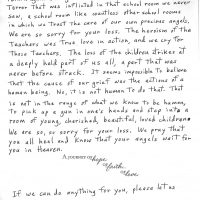 Terror that was inflicted in that school room we never
saw, a school room like countless other school rooms
in which we trust the care of our own precious angels.
We are so sorry for your loss. The heroism of the
Teachers was True love in action, and we cry for
Those Teachers. The loss of the children strikes at
a deeply held part of us all, a part that was
never before struck. It seems impossible to believe
that the cause of our grief was the actions of a
human being. No, it is not human To do that. That
is not in the range of what we know to be human,
To pick up a gun in one's hands and step into a
room of young, cherished, beautiful, loved children.
We are so, so sorry for your loss. We pray that
you all heal and Know That your angels wait for
you in Heaven.
A POCKETFUL OF hope
faith
love
If we can do anything for you, please let us